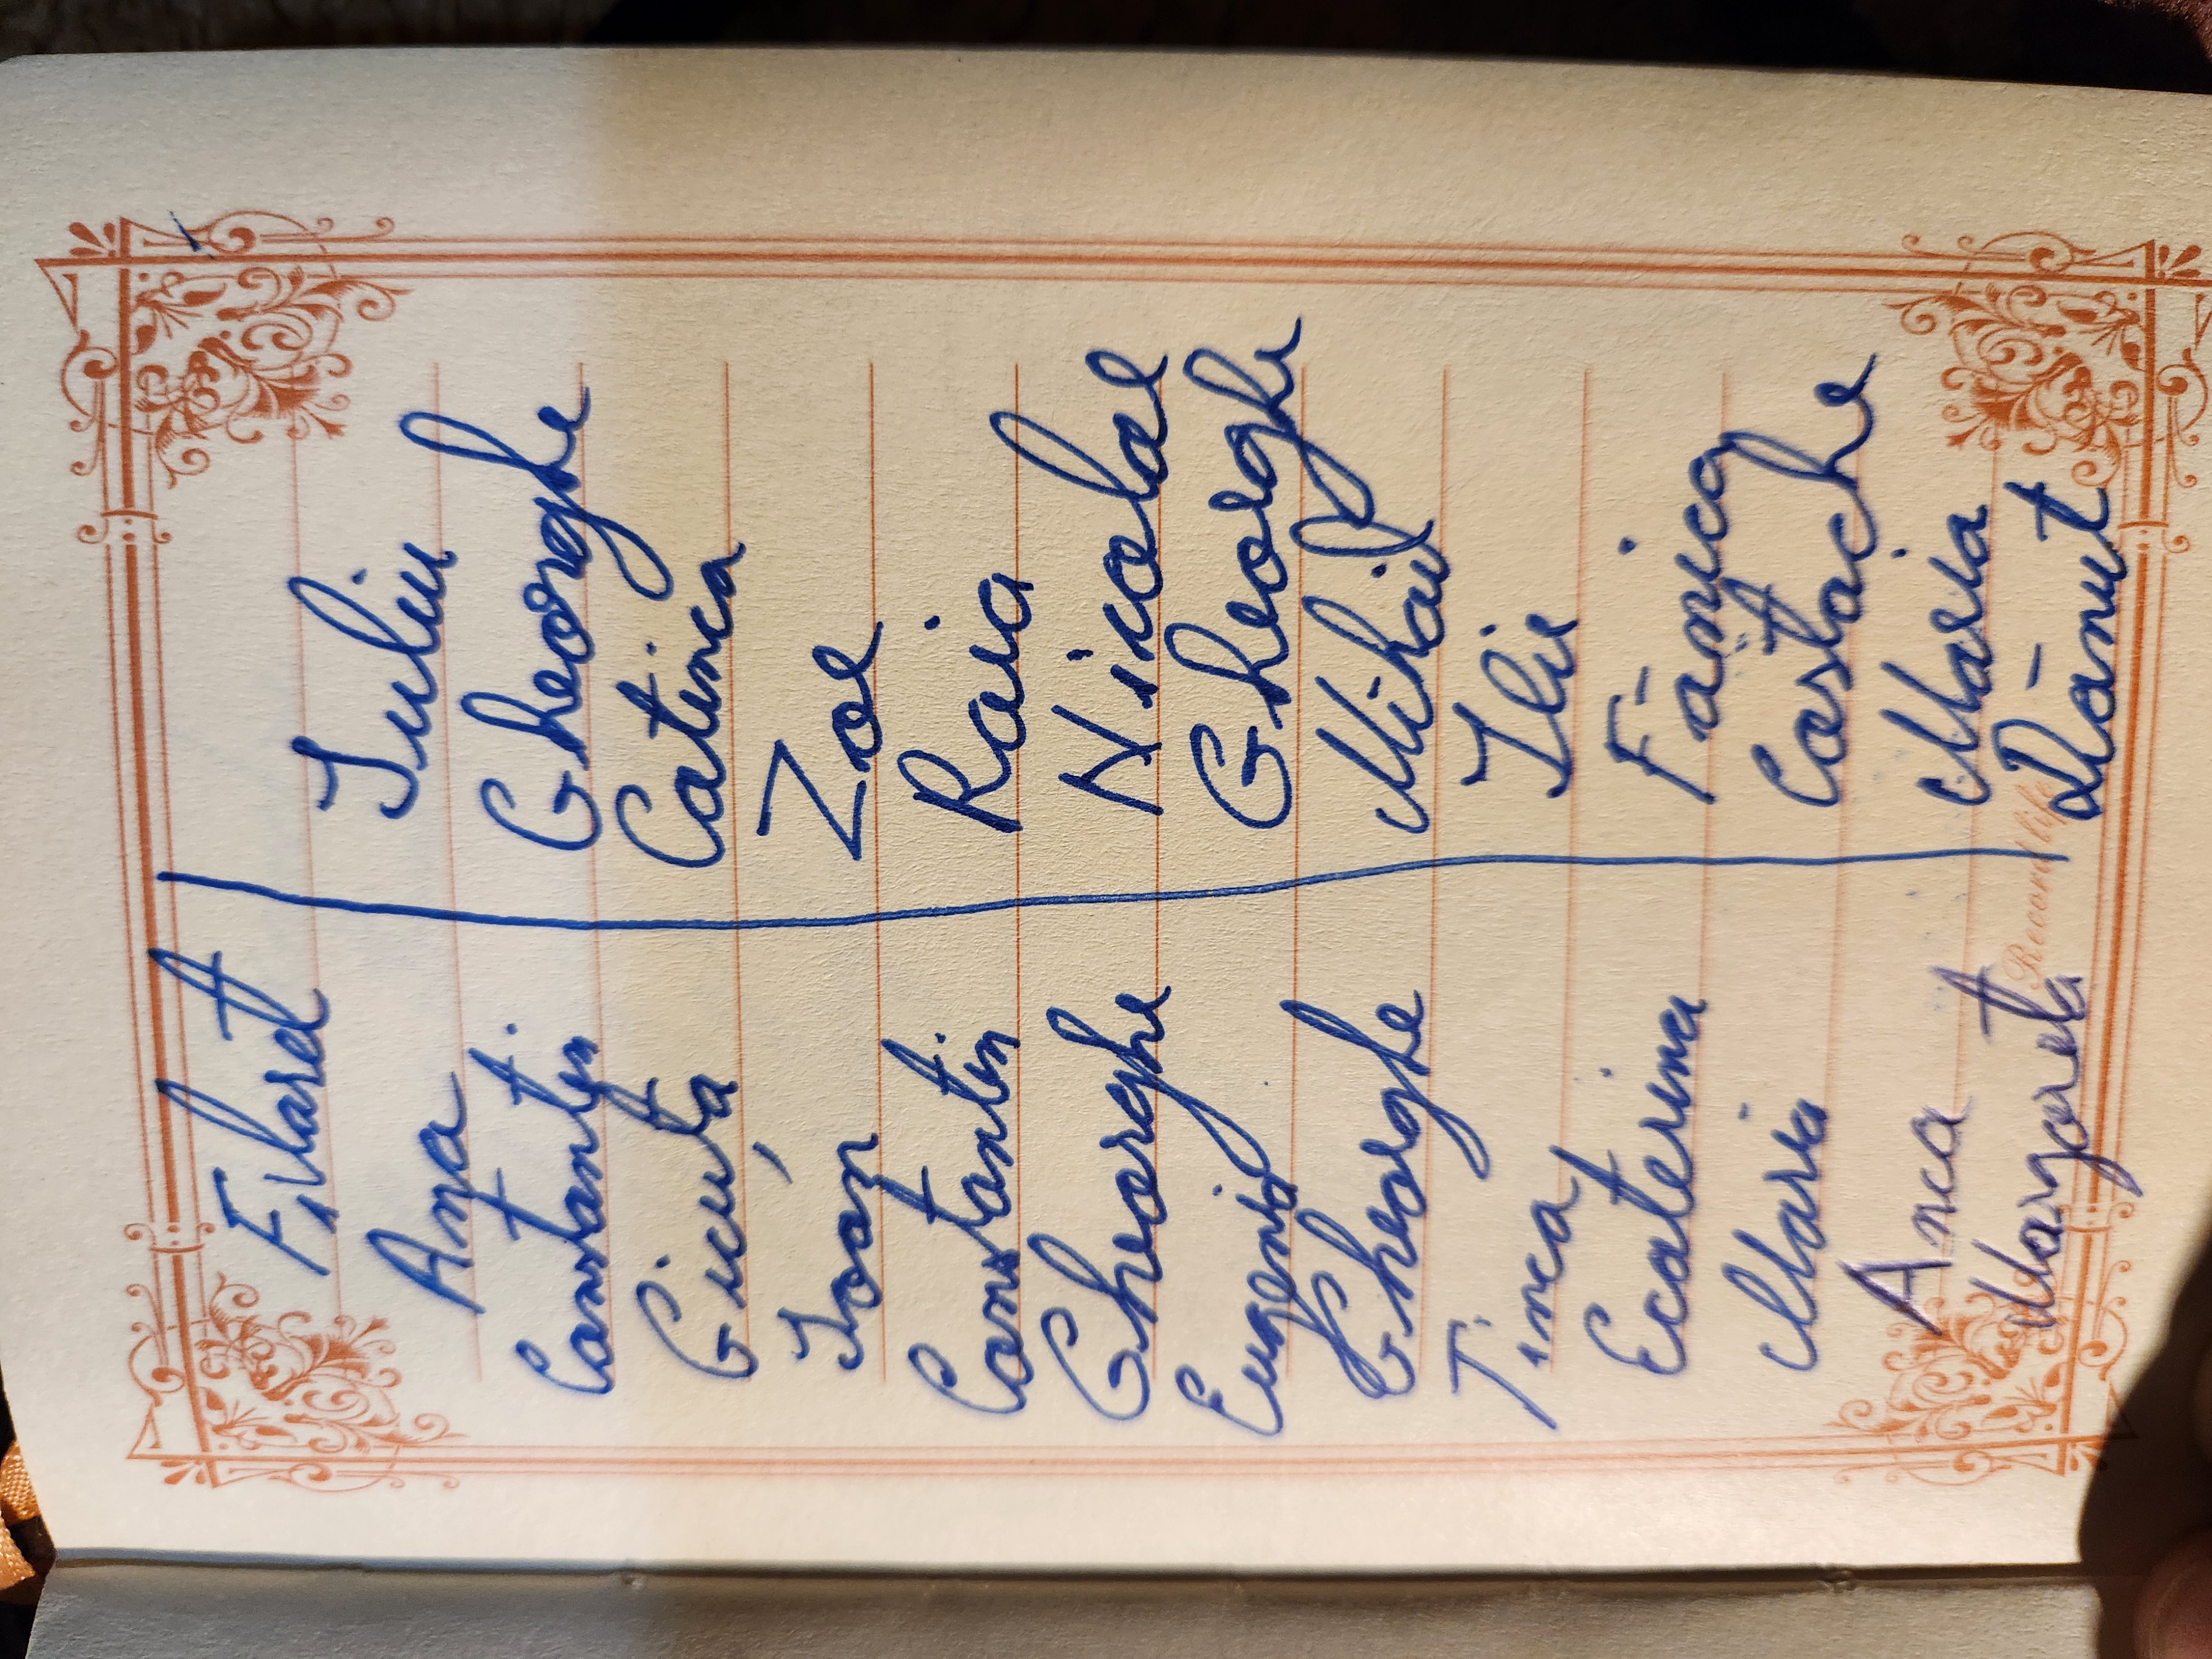 Filaret
Ana
Constantin
Gicuța
Ioan
Constantin
Gheorghe
Eugenia
Gheorghe
Tinca
Ecaterina
Maria
Anca
Margareta
Iuliu
Gheorghe
Catinca
Zoe
Raia
Nicolae
Gheorghe
Mihail
Ilie
Fănica
Costache
Maria
Dănut
Record life